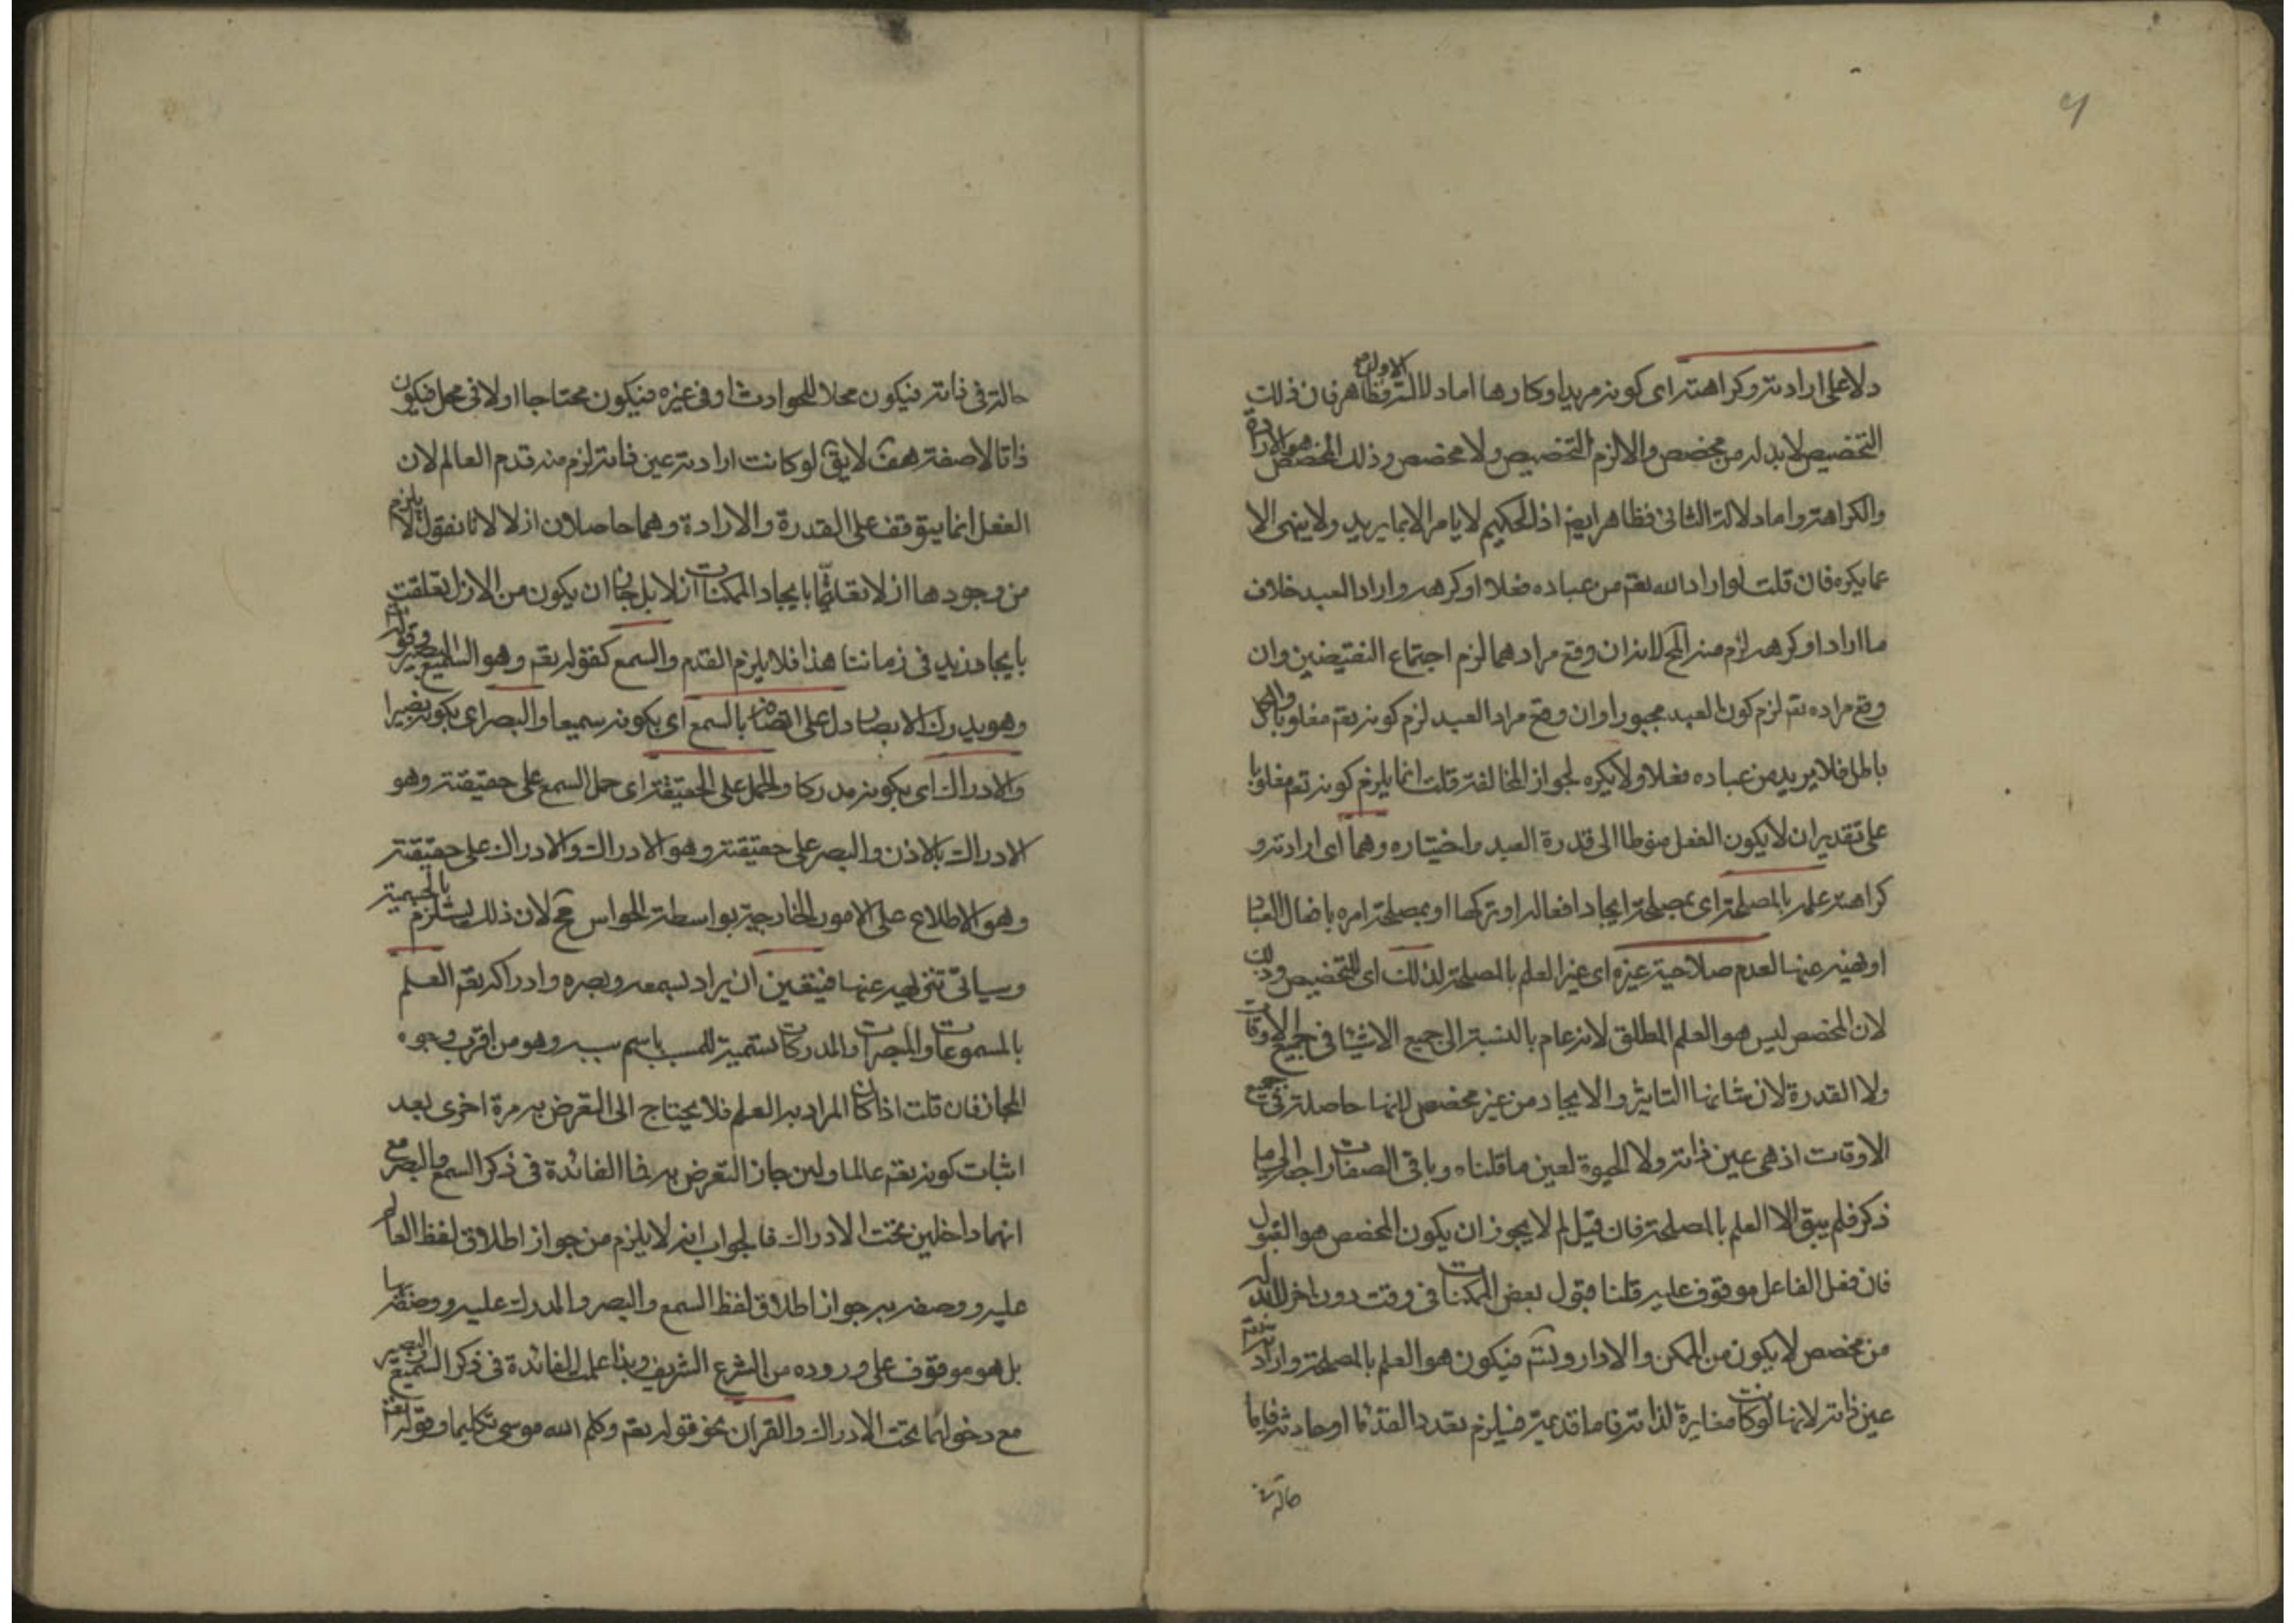 ٩
دلا على ارادته وكراهته اى كونه مريدا وكارها اما دلالة الاول فظاهر فان ذلك
التخصيص لا بد له من مخصص والا لزم التخصيص ولا مخصص وذلك المخصص هو الارادة
والكراهة واما دلالة الثانى فظاهر ايض اذ الحكيم لا يامر الا بما يريد ولا ينهى الا
عما يكره فان قلت لو اراد الله تعم من عباده فعلا او كرهه واراد العبد خلاف
ما اراد او كرهه لزم منه المح لانه ان وقع مرادهما لزم اجتماع النقيضين وان
وقع مراده تعم لزم كون العبد مجبورا وان وقع مراد العبد لزم كونه تعم مغلوبا والكل
باطل فلا يريد من عباده فعلا ولا يكره لجواز المخالفة قلت انما يلزم كونه تعم مغلوبا
على تقدير ان لا يكون الفعل منوطا الى قدرة العبد واختياره وهما اى ارادته و
كراهته علمه بالمصلحة اى بمصلحة ايجاد افعاله او تركها او بمصلحة امره بافعال العباد
او نهيه عنها لعدم صلاحية غيره اى غير العلم بالمصلحة لذلك اى للتخصيص وذلك
لان المخصص ليس هو العلم المطلق لانه عام بالنسبة الى جميع الاشيا فى جميع الاوقات
ولا القدرة لان شانها التاثير والايجاد من غير مخصص لانها حاصلة فى جميع
الاوقات اذ هى عين ذاته ولا الحيوة لعين ما قلناه وباقى الصفات راجعة الى ما
ذكر فلم يبق الا العلم بالمصلحة فان قيل لم لا يجوز ان يكون المخصص هو القبول
فان فعل الفاعل موقوف عليه قلنا قبول بعض الممكنات فى وقت دون اخر لا بد له
من مخصص لا يكون من الممكن والا دار وتس فيكون هو العلم بالمصلحة وارادته تعم
عين ذاته لانها لو كانت مغايرة لذاته فاما قديمة فيلزم تعدد القدما او حادثة فاما
حالة
حالة فى ذاته فيكون محلا للحوادث او فى غيره فيكون محتاجا او لا فى محل فيكون
ذاتا لا صفة هف لا يق لو كانت ارادته عين ذاته لزم منه قدم العالم لان
الفعل انما يتوقف على القدرة والارادة وهما حاصلان ازلا لانا نقول لا يلزم
من وجودها ازلا تعلقها بايجاد الممكنات ازلا بل جاز ان يكون من الازل تعلقت
بايجاد زيد فى زماننا هذا فلا يلزم القدم والسمع كقوله تعم وهو السميع البصير وقوله
وهو يدرك الابصار دل على اتصافه بالسمع اى بكونه سميعا والبصر اى بكونه بصيرا
والادراك اى بكونه مدركا والحمل على الحقيقة اى حمل السمع على حقيقته وهو
الادراك بالاذن والبصر على حقيقته وهو الادراك والادراك على حقيقته
وهو الاطلاع على الامور الخارجية بواسطة الحواس مح لان ذلك يستلزم بالجسمية
وسياتى تنزيهه عنها فيتعين ان يراد بسمعه وبصره وادراكه تعم العلم
بالمسموعات والمبصرات والمدركات تسمية للمسبب باسم سببه وهو من اقرب وجوه
المجاز فان قلت اذا كان المراد به العلم فلا يحتاج الى التعرض به مرة اخرى بعد
اثبات كونه تعم عالما ولين جاز التعرض به فما الفائدة فى ذكر السمع والبصر مع
انهما داخلين تحت الادراك فالجواب انه لا يلزم من جواز اطلاق لفظ العالم
عليه ووصفه به جواز اطلاق لفظ السمع والبصر والمدرك عليه ووصفه بها
بل هو موقوف على وروده من الشرع الشريف وبذا علمت الفائدة فى ذكر السميع البصير
مع دخولهما تحت الادراك والقران نحو قوله تعم وكلم الله موسى تكليما وقوله تعم